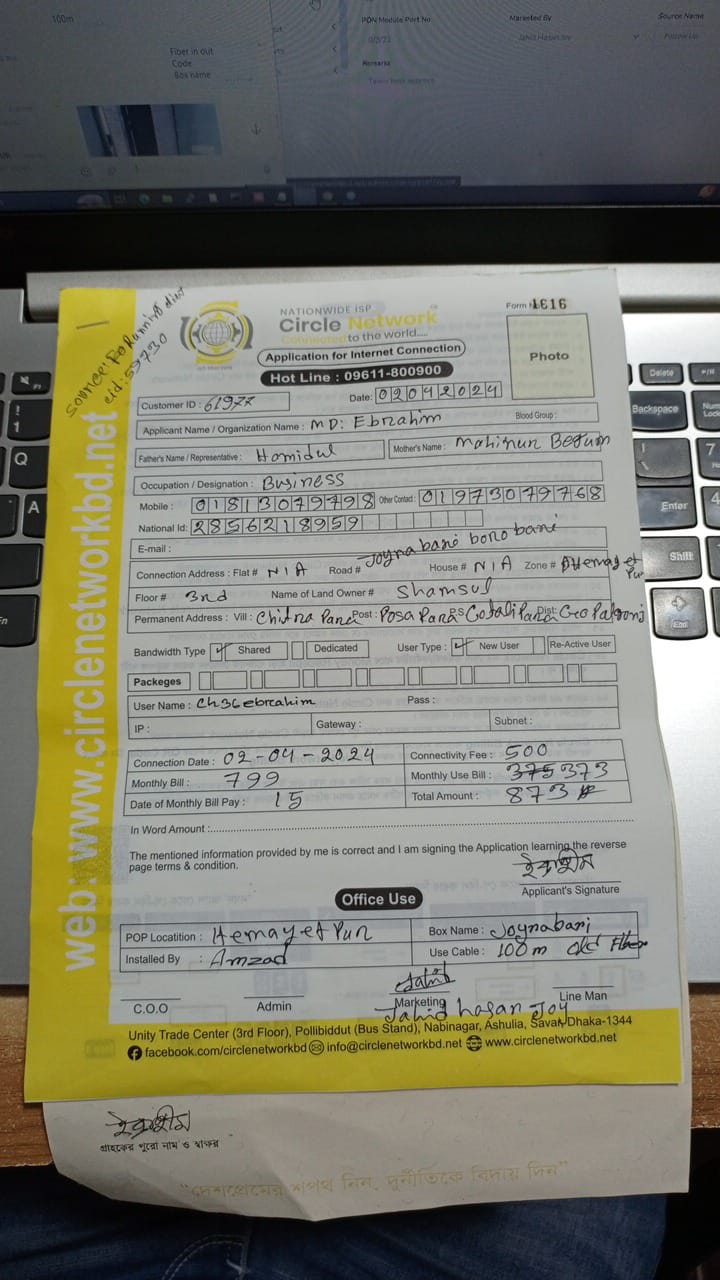 100m
PON Module Port No
Marketed By
Source Name
0/3/23
Jahid Hasan Joy
Follow Up
Fiber in out
Code
Box name
Remarks
NATIONWIDE ISP
Circle Network
Connected to the world....
Form 1616
Application for Internet Connection
Hot Line : 09611-800900
Photo
cid: 59730
Customer ID : 61977
Date: 02042024
Applicant Name / Organization Name : MD: Ebrahim
Blood Group :
Father's Name / Representative : Hamidul
Mother's Name : Mahimun Begum
Occupation / Designation : Business
Mobile : 01813079798 Other Contact : 01973079768
National Id: 2856218959
E-mail :
Connection Address : Flat # N/A Road # Joynabari borobari House # N/A Zone # Hemayet Pur
Floor # 3rd Name of Land Owner # Shamsul
Permanent Address : Vill : Chitra Para Post : Posa Para P.S Cotali Para Dist: Go Palgonj
Bandwidth Type ✓ Shared Dedicated User Type : ✓ New User Re-Active User
Packeges
User Name : Ch36ebrahim Pass :
IP : Gateway : Subnet :
Connection Date : 02-04-2024 Connectivity Fee : 500
Monthly Bill : 799 Monthly Use Bill : 375 373
Date of Monthly Bill Pay : 15 Total Amount : 873
In Word Amount :
The mentioned information provided by me is correct and I am signing the Application learning the reverse
page terms & condition.
ইব্রাহীম
Applicant's Signature
Office Use
POP Locatition : Hemayet Pur Box Name : Joynabari
Installed By : Amzad Use Cable : 100m old Fiber
Jahid
C.O.O Admin Marketing Line Man
Jahid hasan Joy
Unity Trade Center (3rd Floor), Pollibiddut (Bus Stand), Nabinagar, Ashulia, Savar, Dhaka-1344
facebook.com/circlenetworkbd info@circlenetworkbd.net www.circlenetworkbd.net
web: www.circlenetworkbd.net
ইব্রাহীম
গ্রাহকের পুরো নাম ও স্বাক্ষর
"দেশপ্রেমের শপথ নিন, দুর্নীতিকে বিদায় দিন"
Delete
Backspace
Num Lock
Enter
Shift
End
Q
A
7
4
1